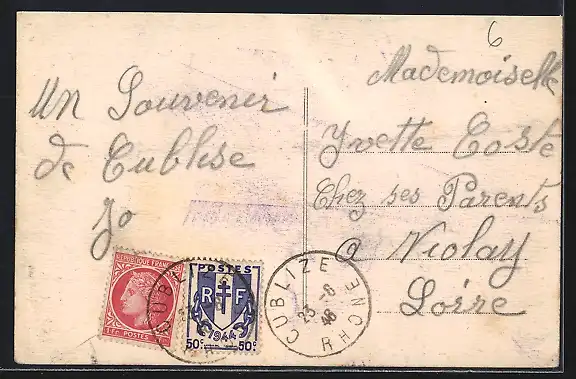 6
Mademoiselle
Un Souvenir
de Cublise
Jo
Yvette Coste
Chez ses Parents
a Violay
Loire
REPUBLIQUE FRANC
1 Fr. POSTES
POSTES
R F
1944
50c 50c
CUBLIZE
23 -8
46
RHONE